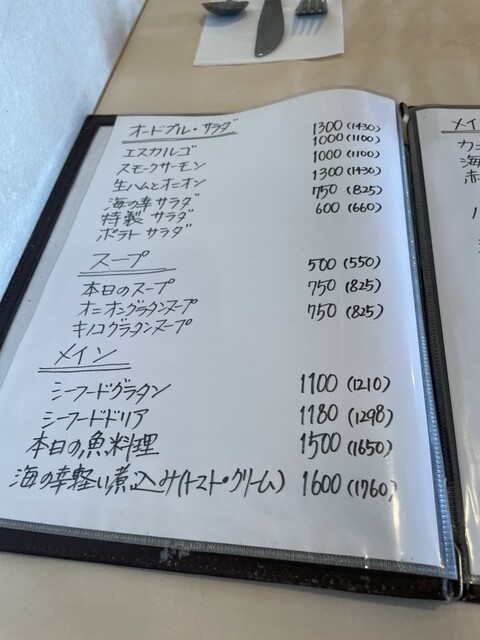 オードブル・サラダ
エスカルゴ 1300(1430)
スモークサーモン 1000(1100)
生ハムとオニオン 1000(1100)
海の幸サラダ 1300(1430)
特製サラダ 750(825)
ポテトサラダ 600(660)
スープ
本日のスープ 500(550)
オニオングラタンスープ 750(825)
キノコグラタンスープ 750(825)
メイン
シーフードグラタン 1100(1210)
シーフードドリア 1180(1298)
本日の魚料理 1500(1650)
海の幸軽い煮込み(トマト・クリーム) 1600(1760)
メイ
カニ
海